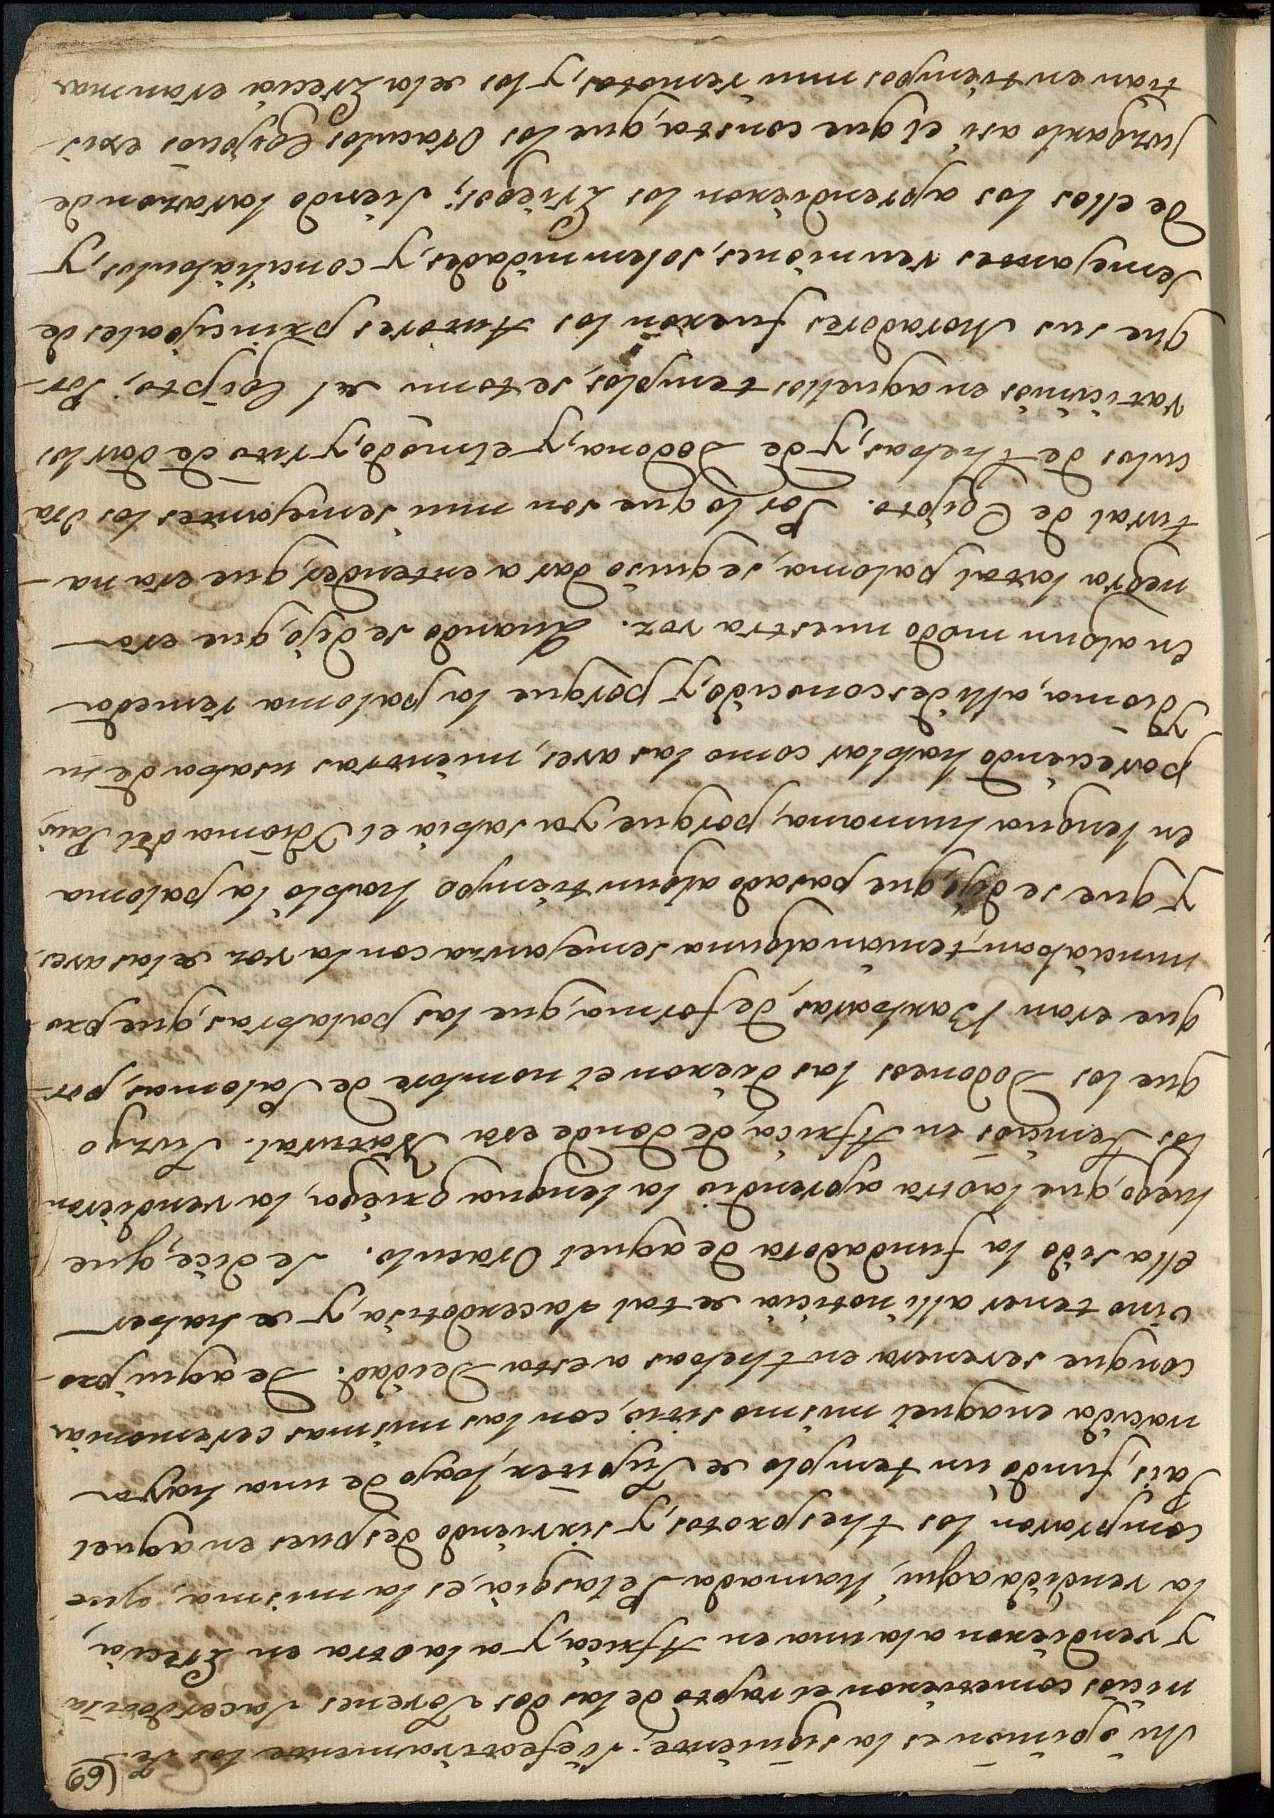 (69
Mi opinion es la siguiente. Si efectivamente los Fe-
nicios cometieron el rapto de las dos Jovenes Sacerdotisas
y vendieron a la una en Africa, y a la otra en Grecia,
la vendida aqui, llamada Pelasgia, es la misma, que
compraron los Thesprotos, y sirviendo despues en aquel
Pais, fundò un templo de Jupiter, bajo de una haya
nacida en aquel mismo sitio, con las mismas ceremonias
con que se venera en Thebas a esta Deidad. De aqui pro-
vino tener alli noticia de tal Sacerdotisa, y de haber
ella sido la fundadora de aquel Oraculo. Se dice, que
luego, que la otra aprendio la lengua griega, la vendieron
los Fenicios en Africa, de donde era Natural. Juzgo
que los Dodoneos las dieron el nombre de Palomas, por-
que eran Barbaras, de forma, que las palabras, que pro-
nunciaban, tenian alguna semejanza con la voz de las aves,
y que se dijo, que pasado algun tiempo habló la paloma
en lengua humana, porque ya sabia el Ydioma del Pais,
pareciendo hablar como las aves, mientras usaba de su
Ydioma, alli desconocido, y porque la paloma remeda
en algun modo nuestra voz. Quando se dijo, que era
negra la tal paloma, se quiso dar a entender, que era na-
tural de Egipto. Por lo que son mui semejantes los Ora
culos de Thebas, y de Dodona, y el modo, y rito de dar los
vaticinios en aquellos templos, se tomò del Egipto; Por-
que sus Moradores fueron los Autores principales de
semejantes reuniones, solemnidades, y conciliabulos, y
de ellos los aprendieron los Griegos; siendo la razon de
juzgarlo asi el que consta, que los Oraculos Egipcios exis-
tian en tiempos mui remotos, y los de la Grecia eran mas